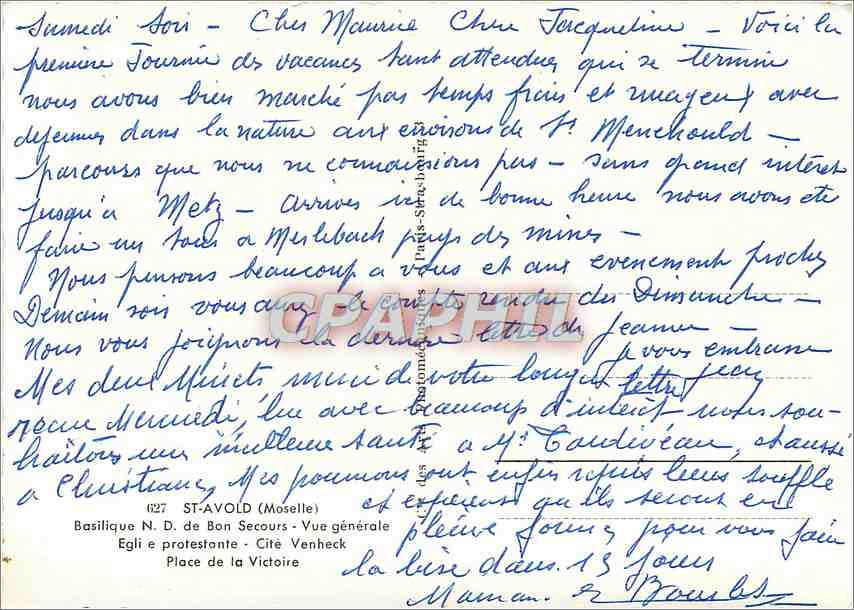 Samedi soir - Cher Maurice Chère Jacqueline - Voici la
première Tournée des vacances tant attendues qui se termine
nous avons bien marché par temps frais et nuageux avec
dejeuner dans la nature aux environs de St Menehould -
parcours que nous ne connaissions pas - sans grand intéret
jusqu'a Metz - arrivés ici de bonne heure nous avons été
faire un tour a Merlebach pays des mines -
Nous pensons beaucoup a vous et aux evenement proches
Demain soir vous aurez le compte rendu du Dimanche -
Nous vous joignons la derniere lettre de Jeanne -
je vous embrasse
Jean
Mes deux Minets, merci de votre longue lettre
reçue Mercredi, lue avec beaucoup d'intéret nous sou-
haitons une meilleure santé a Mr et aussi
a Christiane, Mes poumons ont enfin repris leur souffle
et espérons qu'ils seront en
pleine forme pour vous faire
la bise dans 15 jours
Maman.
627 ST-AVOLD (Moselle)
Basilique N. D. de Bon Secours - Vue générale
Egli e protestante - Cité Venheck
Place de la Victoire
Cie des Arts Photomécaniques - Paris-Strasbourg 3
CPAPHIL